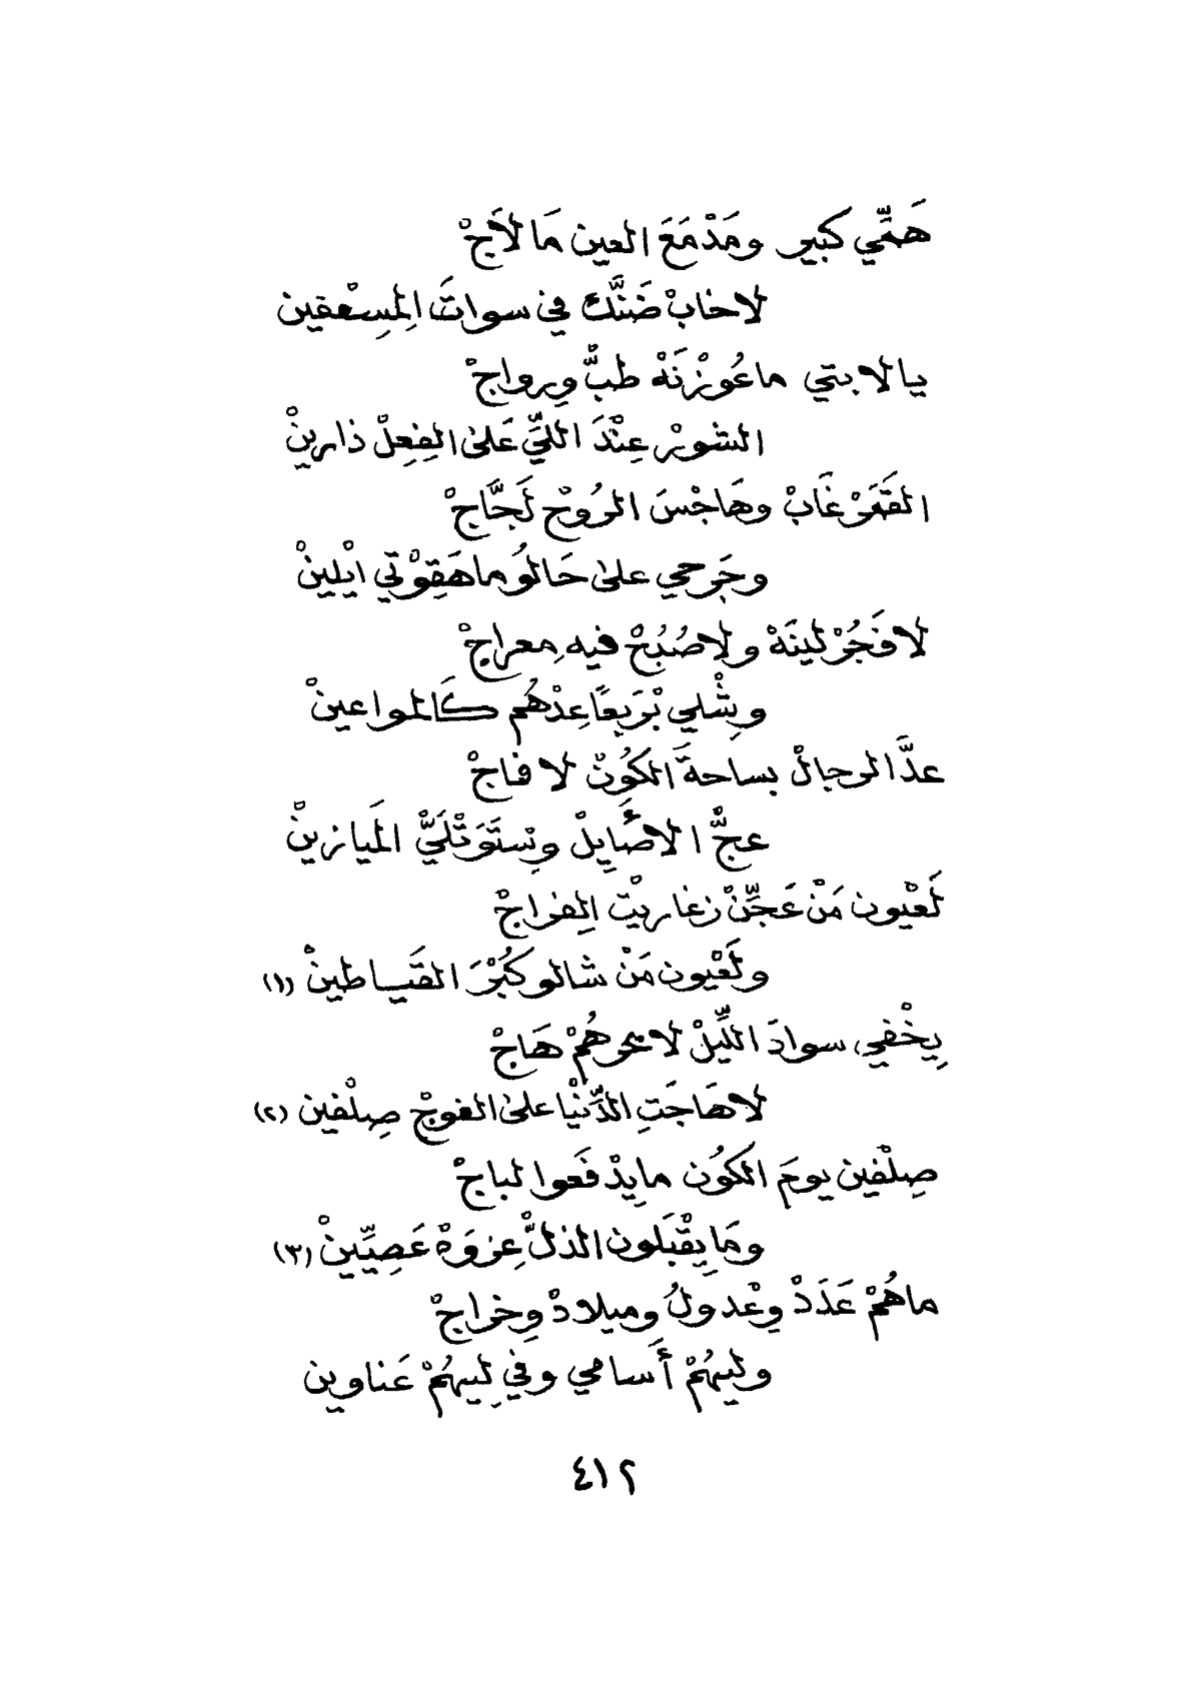 هَمِّي كبير ومَدْمَعَ العين مَا لاَجْ
لا خابْ ضَنَّك في سواتَ اِلمِسْعقين
يالابتي ما عُوزْنَهْ طبٌّ ورواجْ
الشورْ عِنْدَ اللّيَّ عَلىٰ الفِعِلْ ذارينْ
القَمَرْ غَابْ وهَاجْسَ الرُوحْ لَجَّاجْ
وجَرحي علىٰ حَالُو ما هَقِوْتي ايْلينْ
لا فَجُرْ لينَهْ ولا صُبُحْ فيهِ معراجْ
وِشْلي بْرَبِعًا عِدْهُم كَالمواعينْ
عدَّ الرجالْ بساحةَ الكَوُنْ لا فاجْ
عجٌّ الاصَايِلْ وِسْتَوَتْلَيَّ المَيازينْ
لَعْيون مَنْ عَجِّنْ زغاريْت اِلفراجْ
ولَعْيون مَنْ شالو كُبْرَ القَياطينْ (١)
يِخْفي سوادَ اللِّيلْ لا نحوهُمْ هَاجْ
لا هَاجَتِ الدِّنْيا علىٰ الفوجْ صِلْفين (٢)
صِلْفين يومَ الكَوُن ما يِدْفَعوا لباجْ
ومَا يِقْبَلون الذلَّ عِزوَةْ عَصِيِّينْ (٣)
ما هُمْ عَدَدْ وِعْدولُ وميلادْ وِخراجْ
وليهُمْ أَسامي وفي لِيهُمْ عَناوين
٤١٢